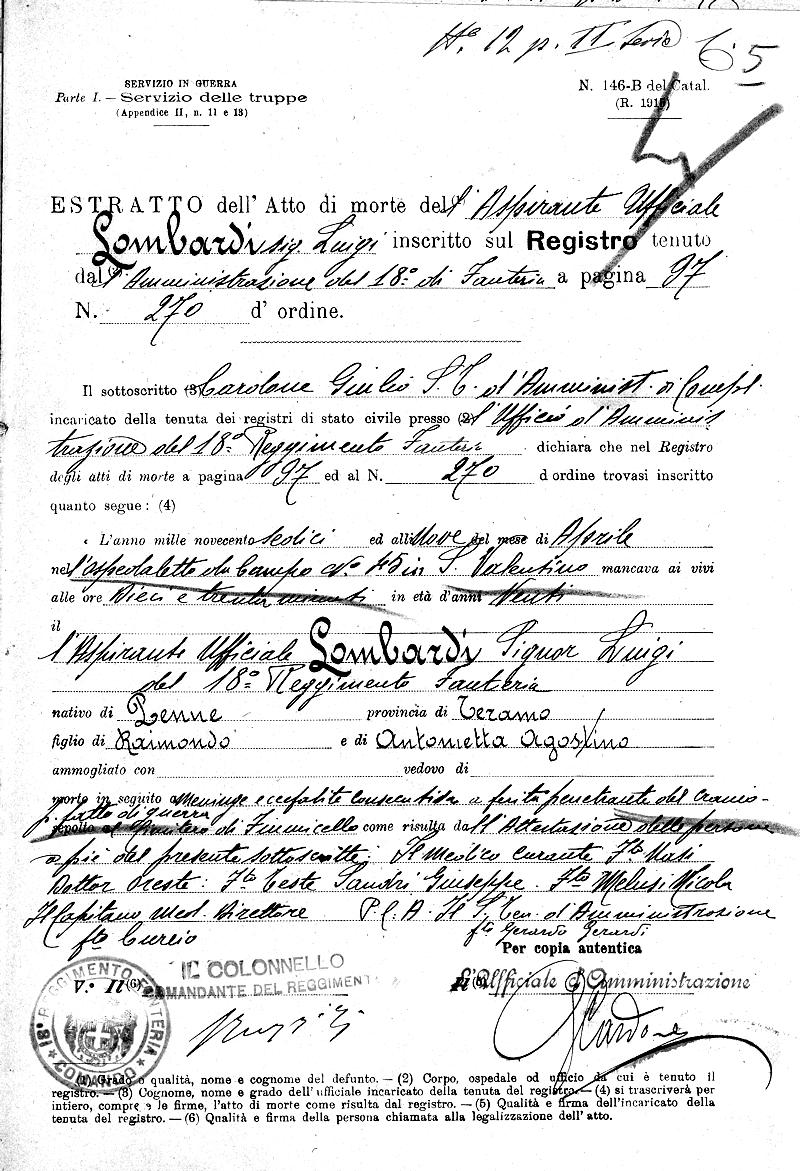 N.º 12 p. II Serie 65
SERVIZIO IN GUERRA
Parte I. — Servizio delle truppe
(Appendice II, n. 11 e 13)
N. 146-B del Catal.
(R. 1915)
ESTRATTO dell' Atto di morte dell' Aspirante Ufficiale
Lombardi sig. Luigi inscritto sul Registro tenuto
dall' Amministrazione del 18º di Fanteria a pagina 97
N. 270 d' ordine.
Il sottoscritto (3) Cardone Giulio S. T. d'Amminist. di Compl.
incaricato della tenuta dei registri di stato civile presso (2) l'Ufficio d'Amminis
trazione del 18º Reggimento Fanteria dichiara che nel Registro
degli atti di morte a pagina 97 ed al N. 270 d ordine trovasi inscritto
quanto segue: (4)
« L'anno mille novecento sedici ed alli nove del mese di Aprile
nell'ospedaletto da Campo Nº 45 in S. Valentino mancava ai vivi
alle ore Dieci e trenta minuti in età d'anni Venti
il
l'Aspirante Ufficiale Lombardi Signor Luigi
del 18º Reggimento Fanteria
nativo di Penne provincia di Teramo
figlio di Raimondo e di Antonietta Agostino
ammogliato con vedovo di
morto in seguito a Meninge eccefalite consecutiva a ferita penetrante del cranio-
p. fatto di guerra
sepolto al Cimitero di Fiumicello come risulta dall'Attestazione delle persone
a piè del presente sottoscritte: Il Medico curante Fto Masi
Dottor Oreste: Fto Teste Sandri Giuseppe. Fto Melusi Nicola
Il Capitano Med. Direttore P. C. A. Il S. Ten. d'Amministrazione
fto Curcio fto Gerardo Gerardi
Per copia autentica
V.º Il (6) IL COLONNELLO
COMANDANTE DEL REGGIMENTO
l'Ufficiale d'Amministrazione
GCardone
18. REGGIMENTO FANTERIA
COMANDO
(1) Grado o qualità, nome e cognome del defunto. — (2) Corpo, ospedale od ufficio da cui è tenuto il
registro. — (3) Cognome, nome e grado dell'ufficiale incaricato della tenuta del registro. — (4) si trascriverà per
intiero, comprese le firme, l'atto di morte come risulta dal registro. — (5) Qualità e firma dell'incaricato della
tenuta del registro. — (6) Qualità e firma della persona chiamata alla legalizzazione dell'atto.